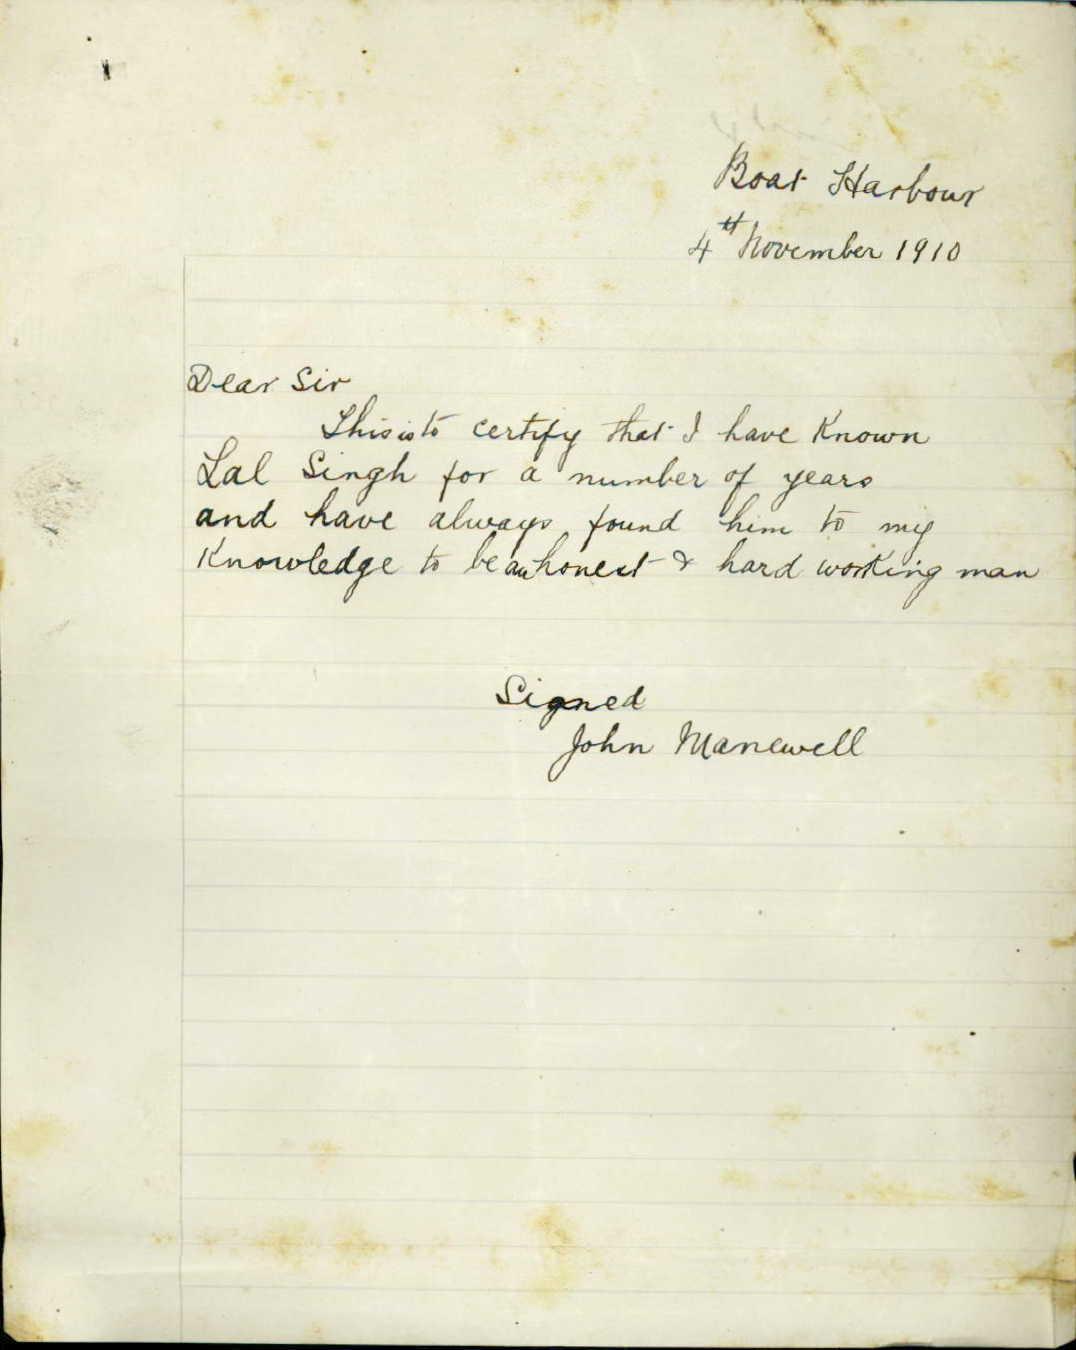 Boat Harbour
4th November 1910
Dear Sir
This is to certify that I have Known
Lal Singh for a number of years
and have always found him to my
Knowledge to be an honest & hard working man
Signed
John Manewell